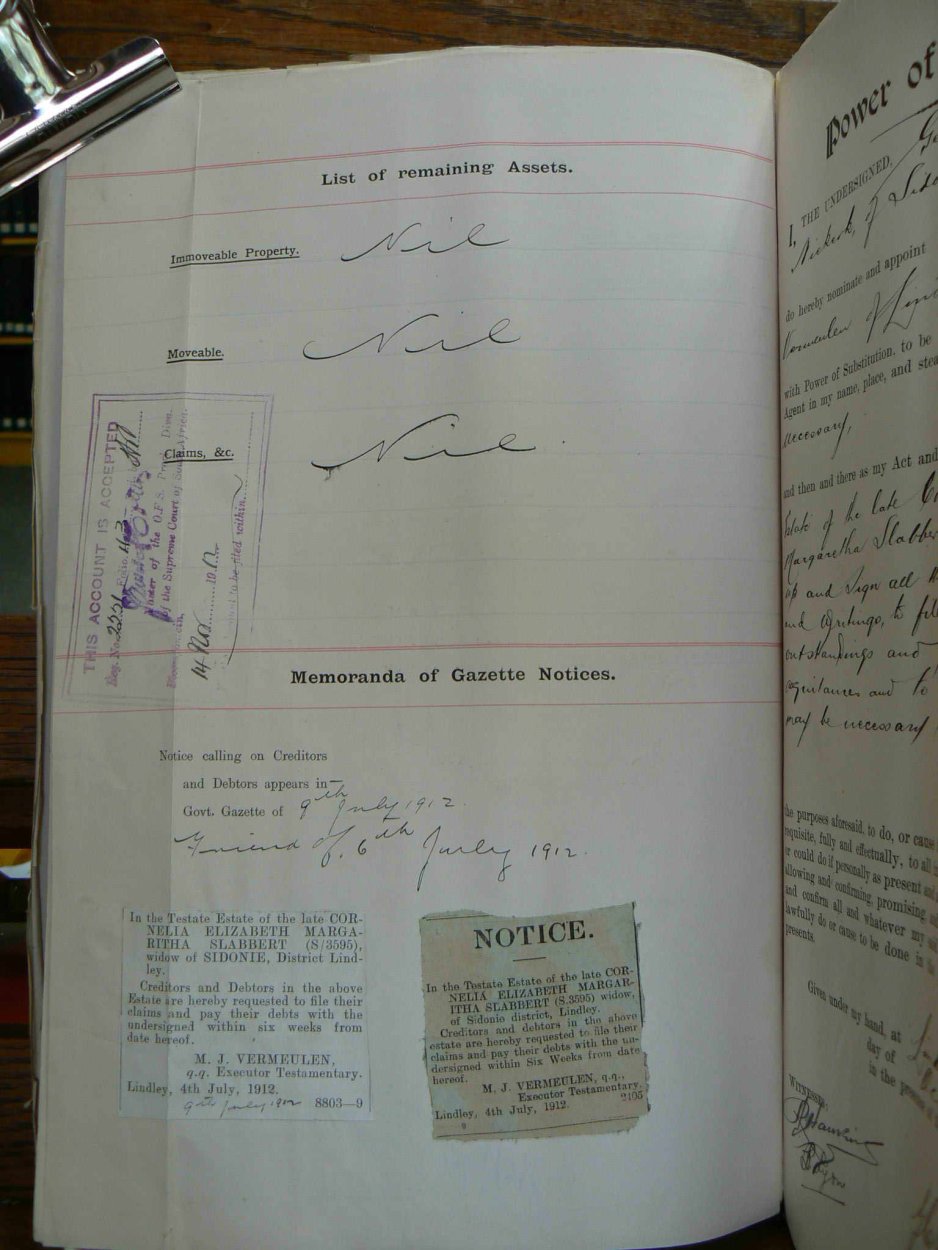 List of remaining Assets.
Immoveable Property. Nil
Moveable. Nil
Claims, &c. Nil
THIS ACCOUNT IS ACCEPTED
Reg. No. 2221 Folio
Master of the O.F.S. Prov. Divn.
of the Supreme Court of South Africa.
14 Nov 1912
to be filed within
Memoranda of Gazette Notices.
Notice calling on Creditors
and Debtors appears in
Govt. Gazette of 9th July 1912.
Friend of. 6th July 1912.
In the Testate Estate of the late COR-
NELIA ELIZABETH MARGA-
RITHA SLABBERT (S/3595),
widow of SIDONIE, District Lind-
ley.
Creditors and Debtors in the above
Estate are hereby requested to file their
claims and pay their debts with the
undersigned within six weeks from
date hereof.
M. J. VERMEULEN,
q.q. Executor Testamentary.
Lindley, 4th July, 1912.
9th July 1912 8803—9
NOTICE.
In the Testate Estate of the late COR-
NELIA ELIZABETH MARGAR-
ITHA SLABBERT (S.3595) widow,
of Sidonie district, Lindley.
Creditors and debtors in the above
estate are hereby requested to file their
claims and pay their debts with the un-
dersigned within Six Weeks from date
hereof.
M. J. VERMEULEN, q.q.,
Executor Testamentary.
Lindley, 4th July, 1912. 2195
9
Power of
I, THE UNDERSIGNED,
Niekerk, of
do hereby nominate and appoint
Vermeulen of
with Power of Substitution, to be
Agent in my name, place, and
necessary,
and then and there as my Act and
Estate of the late
Margaretha
up and Sign all
and Writings, to
outstandings and
acquitances and to
may be necessary
the purposes aforesaid, to do, or cause
requisite, fully and effectually, to all
or could do if personally as present and
allowing and confirming, promising
and confirm all and whatever my
lawfully do or cause to be done in
presents.
Given under my hand, at
day of
in the
WITNESSES: